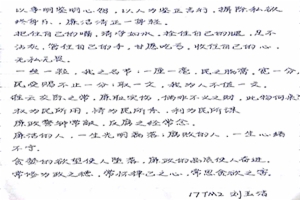 以李明鉴明心相,以人为鉴正言行,摒除私欲
终有乐,廉洁清正一身轻。
把住自己的嘴,清守如水,拴住自己的腿,足不
沾水,管住自己的手,甘愿吃亏,收住自己的心,
无私无畏。
一丝一粒,我之名节;一厘一毫,民之脂膏,宽一分,
民受赐不止一分;取一文,我为人不值一文,
谁云交际之常,廉耻实伤,倘非不义之财,此物何来?
权为民所用,情为民所系,利为民所谋
廉政警钟常敲,反腐之经常念。
廉洁的人,一生光明磊落;腐败的人,一生心绪
不宁。
贪婪的欲望使人堕落,廉政的品质使人奋进。
常修为政之德,常怀律己之心,常思贪欲之害。
17TM2 刘玉